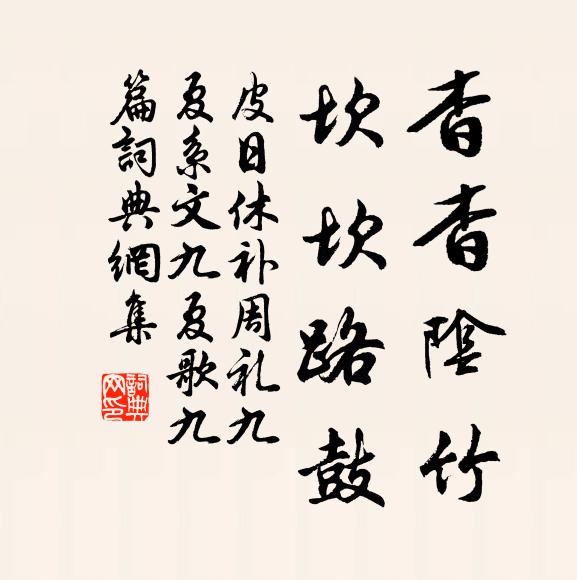 杳杳陰竹
坎坎路鼓
皮日休补周礼九
夏系文九夏歌九
篇詞典網集
詞典
网印